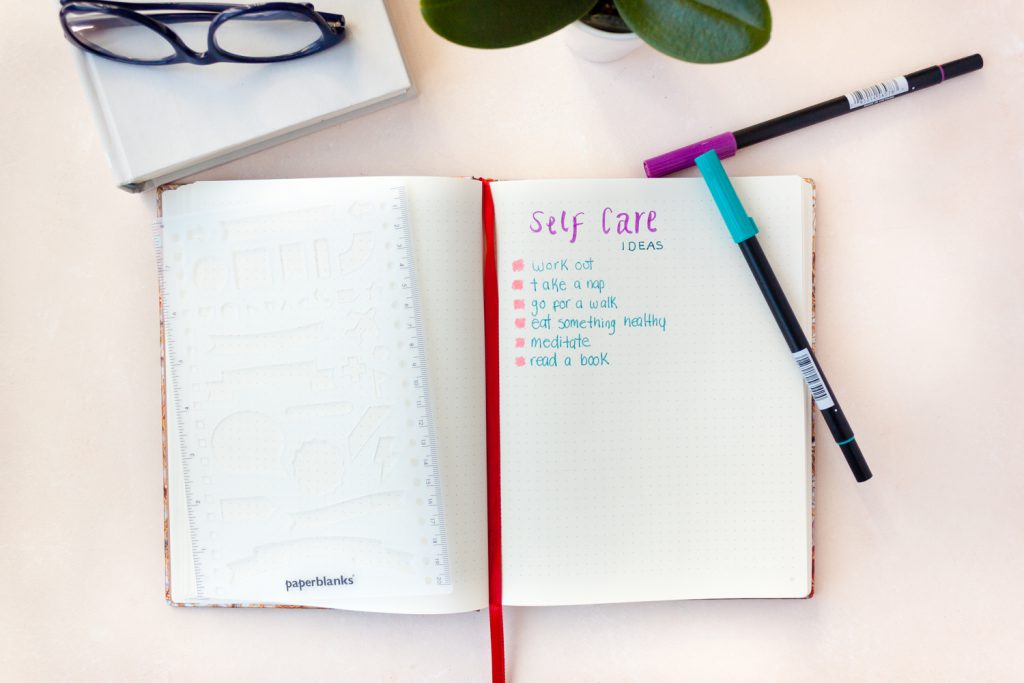 Self Care
IDEAS
work out
take a nap
go for a walk
eat something healthy
meditate
read a book
paperblanks